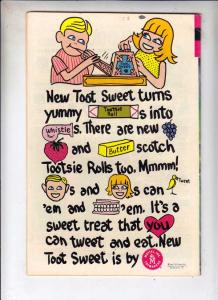 New Toot Sweet turns
yummy Tootsie Roll s into
whistle s. There are new
and Butter scotch
Tootsie Rolls too. Mmmm!
s and s can Tweet
'em and 'em. It's a
sweet treat that you
can tweet and eat. New
Toot Sweet is by